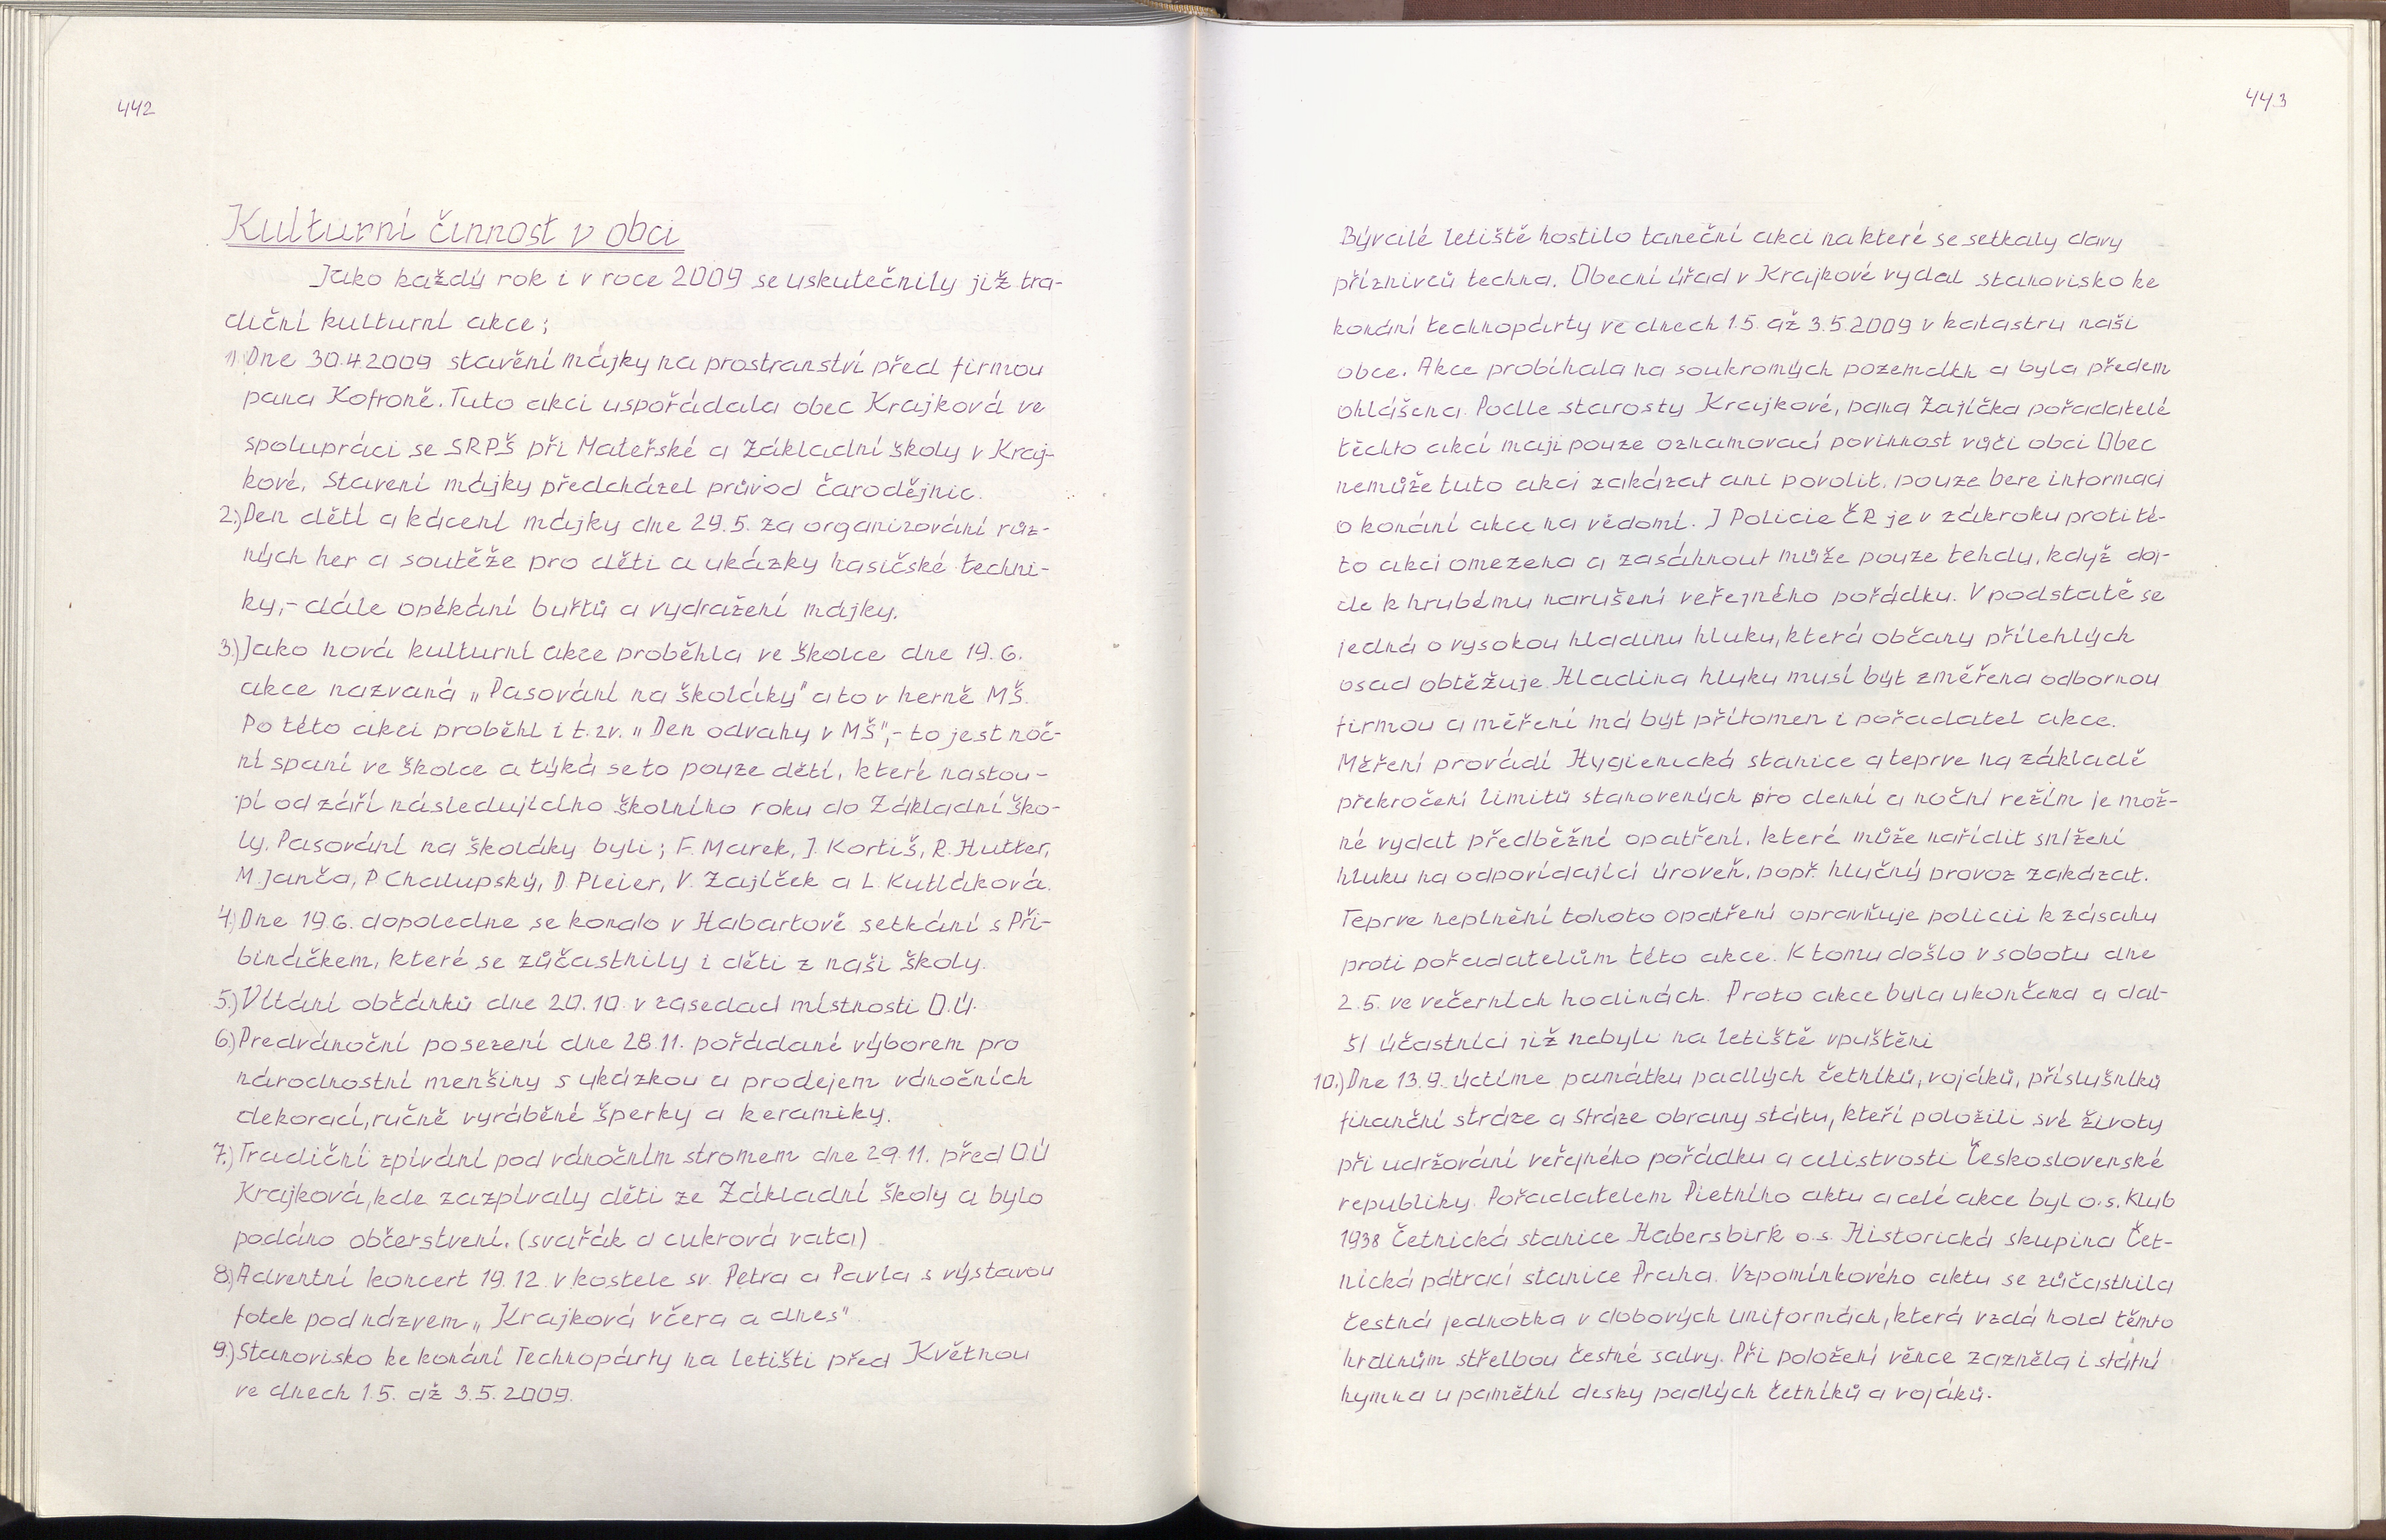 442
Kulturní činnost v obci
Jako každý rok i v roce 2009 se uskutečnily již tra-
diční kulturní akce;
1) Dne 30.4.2009 stavění májky na prostranství před firmou
pana Kofroně. Tuto akci uspořádala obec Krajková ve
spolupráci se SRPŠ při Mateřské a Základní školy v Kraj-
kové. Stavení májky předcházel průvod čarodějnic.
2.) Den dětí a kácení májky dne 29.5. za organizování růz-
ných her a soutěže pro děti a ukázky hasičské techni-
ky,- dále opékání buřtů a vydražení májky.
3.) Jako nová kulturní akce proběhla ve školce dne 19.6.
akce nazvaná „Pasování na školáky" a to v herně MŠ.
Po této akci proběhl i t.zv. „Den odvahy v MŠ",- to jest noč-
ní spaní ve školce a týká se to pouze dětí, které nastou-
pí od září následujícího školního roku do Základní ško-
ly. Pasování na školáky byli; F. Marek, J. Kortiš, R. Hutter,
M. Janča, P. Chalupský, D. Pleier, V. Zajíček a L. Kutláková.
4.) Dne 19.6. dopoledne se konalo v Habartově setkání s Při-
bináčkem, které se zůčastnily i děti z naši školy.
5.) Vítání občánků dne 20.10. v zasedací místnosti O.Ú.
6.) Predvánoční posezení dne 28.11. pořádané výborem pro
národnostní menšiny s ukázkou a prodejem vánočních
dekorací, ručně vyráběné šperky a keramiky.
7.) Tradiční zpívání pod vánočním stromem dne 29.11. před O.Ú
Krajková, kde zazpívaly děti ze Základní školy a bylo
podáno občerstvení. (svařák a cukrová vata)
8.) Adventní koncert 19.12. v kostele sv. Petra a Pavla s výstavou
fotek pod názvem „Krajková včera a dnes".
9.) Stanovisko ke konání Technopárty na letišti před Květnou
ve dnech 1.5. až 3.5.2009.
443
Bývalé letiště hostilo taneční akci na které se setkaly davy
příznivců techna. Obecní úřad v Krajkové vydal stanovisko ke
konání technopárty ve dnech 1.5. až 3.5.2009 v katastru naši
obce. Akce probíhala na soukromých pozemcích a byla předem
ohlášena. Podle starosty Krajkové, pana Zajíčka pořadatelé
těchto akcí mají pouze oznamovací povinnost vůči obci Obec
nemůže tuto akci zakázat ani povolit, pouze bere informaci
o konání akce na vědomí. I Policie ČR je v zákroku proti té-
to akci omezena a zasáhnout může pouze tehdy, když doj-
de k hrubému narušení veřejného pořádku. V podstatě se
jedná o vysokou hladinu hluku, která občany přilehlých
osad obtěžuje. Hladina hluku musí být změřena odbornou
firmou a měření má být přítomen i pořadatel akce.
Měření provádí Hygienická stanice a teprve na základě
překročení limitů stanovených pro denní a noční režim je mož-
né vydat předběžné opatření, které může nařídit snížení
hluku na odpovídající úroveň, popř. hlučný provoz zakázat.
Teprve neplnění tohoto opatření opravňuje policii k zásahu
proti pořadatelům této akce. K tomu došlo v sobotu dne
2.5. ve večerních hodinách. Proto akce byla ukončena a dal-
ší účastníci již nebyli na letiště vpuštěni
10.) Dne 13.9. uctíme památku padlých četníků, vojáků, příslušníků
finanční stráže a Stráže obrany státu, kteří položili své životy
při udržování veřejného pořádku a celistvosti Československé
republiky. Pořadatelem Pietního aktu a celé akce byl o.s. Klub
1938 Četnická stanice Habersbirk o.s. Historická skupina Čet-
nická pátrací stanice Praha. Vzpomínkového aktu se zůčastnila
čestná jednotka v dobových uniformách, která vzdá hold těmto
hrdinům střelbou čestné salvy. Při položení věnce zazněla i státní
hymna u pamětní desky padlých četníků a vojáků.